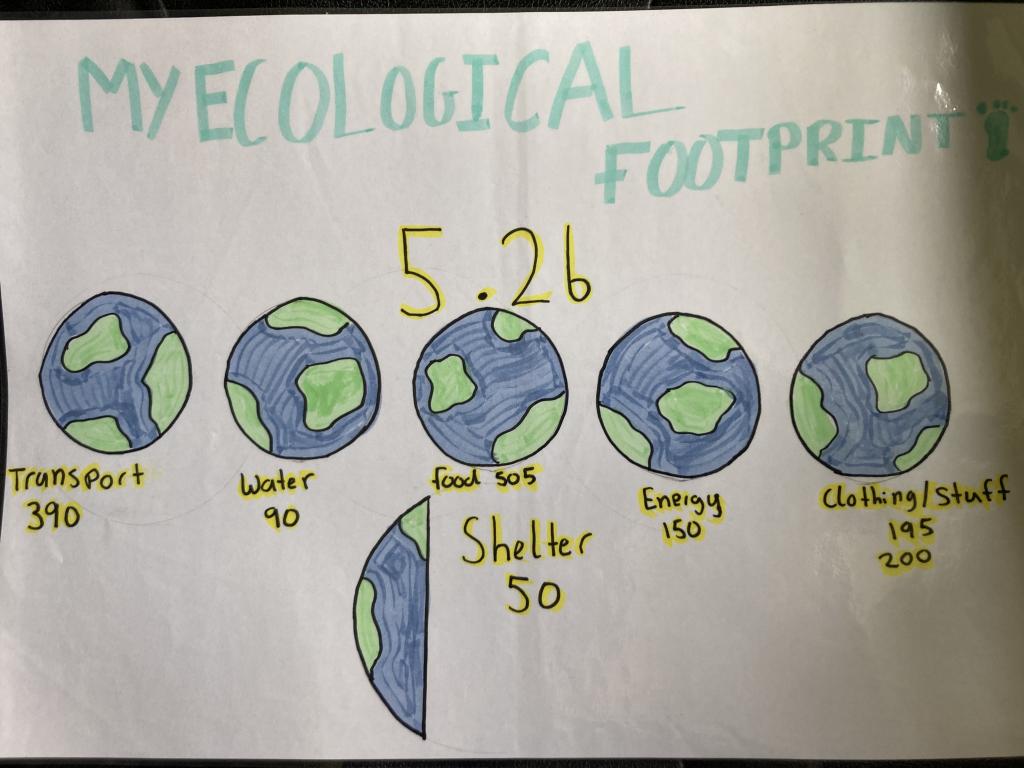 MY ECOLOGICAL
FOOTPRINT
5.26
Transport
390
Water
90
food 505
Energy
150
Clothing/Stuff
195
200
Shelter
50